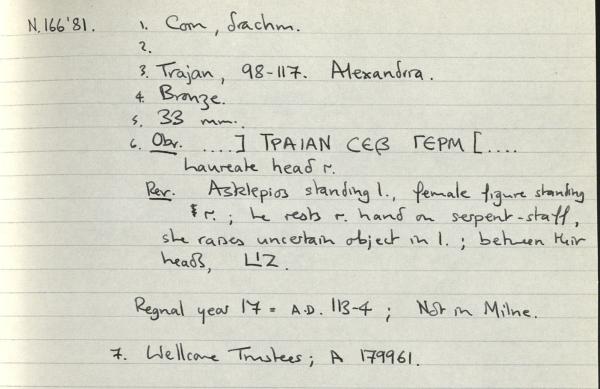 N.166'81. 1. Coin, drachm.
2.
3. Trajan, 98-117. Alexandria.
4. Bronze.
5. 33 mm.
6. Obv. ....] ΤΡΑΙΑΝ CΕβ ΓΕΡΜ [....
Laureate head r.
Rev. Asklepios standing l., female figure standing
r.; he rests r. hand on serpent-staff,
she raises uncertain object in l.; between their
heads, LIZ.
Regnal year 17 = A.D. 113-4; Not in Milne.
7. Wellcome Trustees; A 179961.